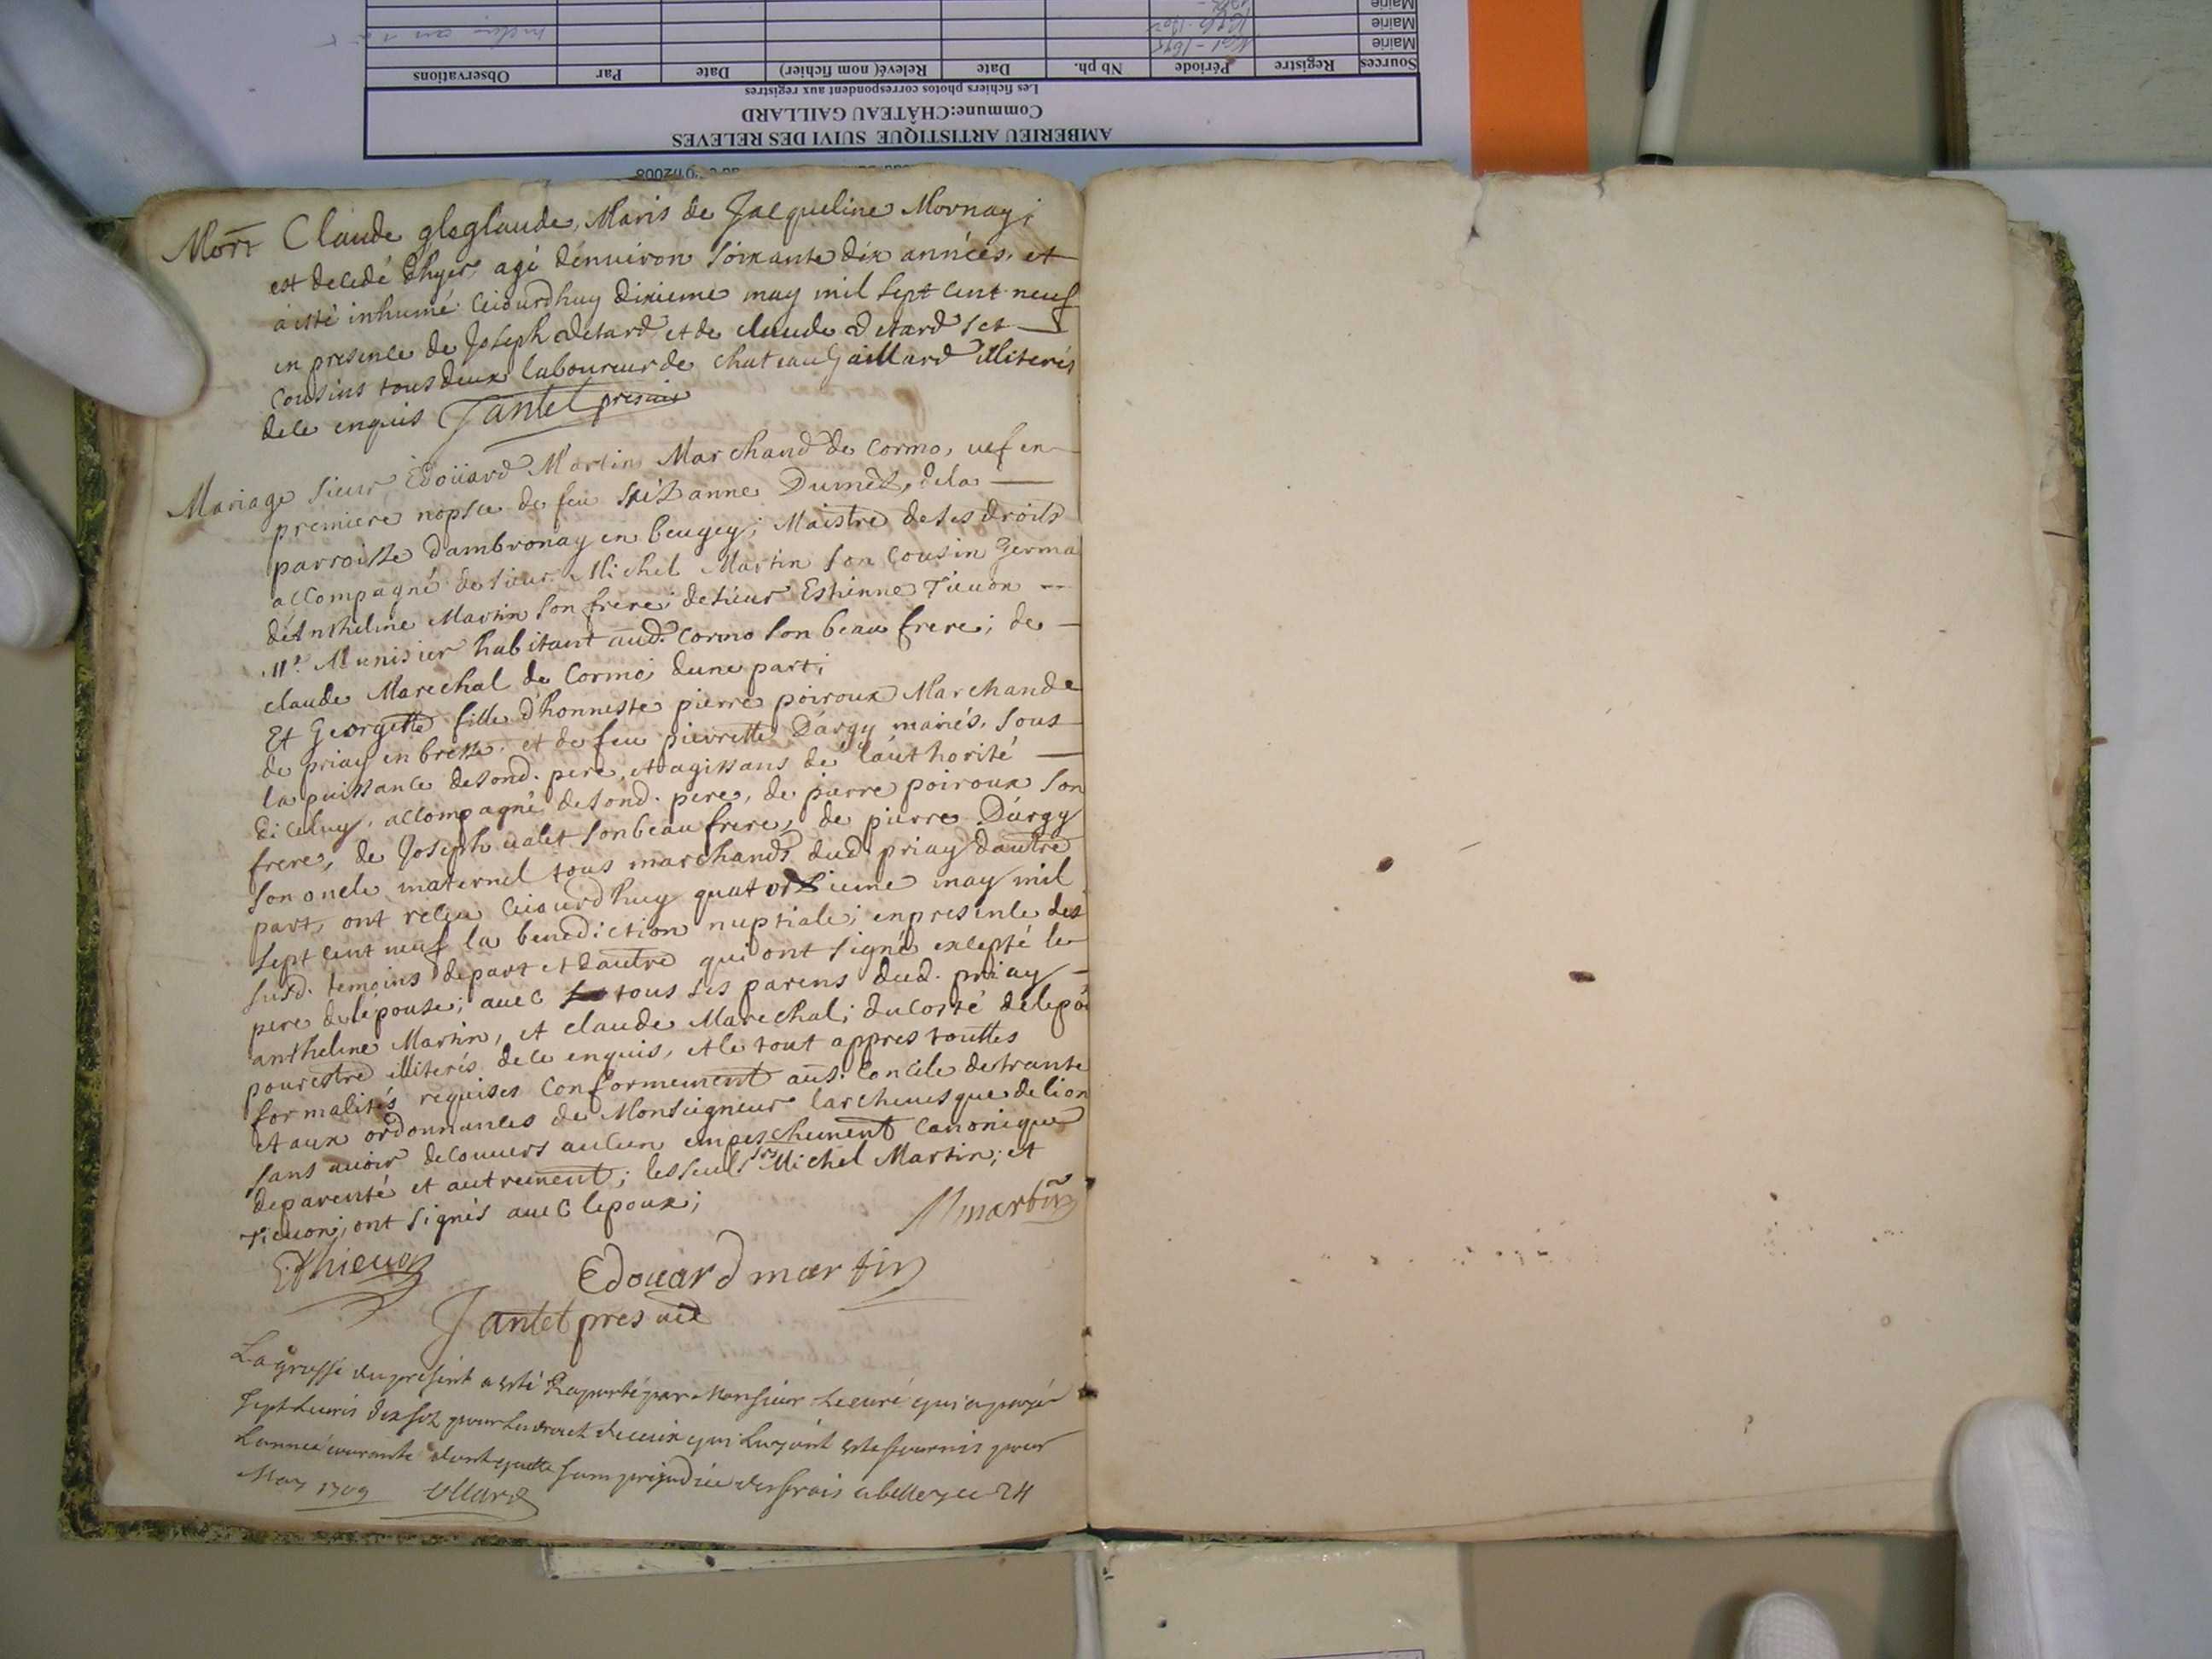 Mort Claude gloglaude, Maris de Jacqueline Mornay;
est decedé d'hyer, agé denuiron soixante dix années, et
a esté inhumé ceiourdhuy dixieme may mil sept cent neuf
en presence de Joseph adetard et de claude adetard ses
cousins tous deux laboureur de chateau Gaillard illiterés
de ce enquis Jantet presuic
Mariage sieur Edoüard Martin Marchand de Cormo, uef en
premiere nopsce de feu Suzanne Dumed, de la
parroisse dambronay en beugey; Maistre de ses droits
accompagné de sieur Michel Martin son Cousin germa
de Antheline Martin son frere; de sieur Estienne Tieuon
Mr. Munisier habitant aud. Cormo son beau frere; de
claude Marechal de Cormo; dune part;
Et Georgette fille d'honneste pierre poiroux Marchand
de priay en bresse et de feu pierrette Dargy mariés, sous
la puissance de sond. pere, et agissans de lauthorité
diceluy, accompagné de sond. pere, de pierre poiroux son
frere, de Joseph ualet son beau frere, de pierre Dargy
son oncle maternel tous marchands dud. priay dautre
part, ont receu ceiourdhuy quatorsieme may mil
sept cent neuf la benediction nuptiale; en presence des
susd. temoins de part et dautre qui ont signé excepté le
pere de lépouse; auec tous ses parens dud. priay
antheline Martin, et claude Marechal; du costé de lepou
pour estre illiterés de ce enquis, et le tout appres touttes
formalités requises Conformement au s. Concile de trante
et aux ordonnances de Monseigneur larcheuesque de lion
sans auoir decouuers aucun empeschement Canonique
de parenté et autrement; les seuls srs Michel Martin; et
Tieuon; ont signés auec lepoux;
M martin
E Thieuon Edouard martin
Jantet pres uic
La grosse du present a esté Raporté par Monsieur Le curé qui a payé
sept liures dix solz pour Le droict de ceux qui luy ont esté fournis pour
L'année courante dont quitte sans prejudice des frais a belley ce 24
May 1709